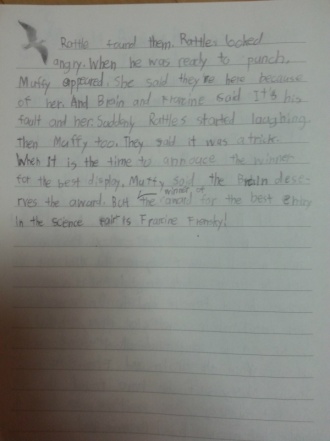 Rattle found them. Rattles looked
angry. When he was ready to punch,
Muffy appeared. She said they're here because
of her. And Brain and Francine said It's his
fault and her. Suddenly Rattles started laughing.
Then Muffy too. They said it was a trick.
When It is the time to annoace the winner
for the best display, Muffy said the Brain dese-
rves the award. But the winner of award for the best
in the science fair is Francine Frensky!